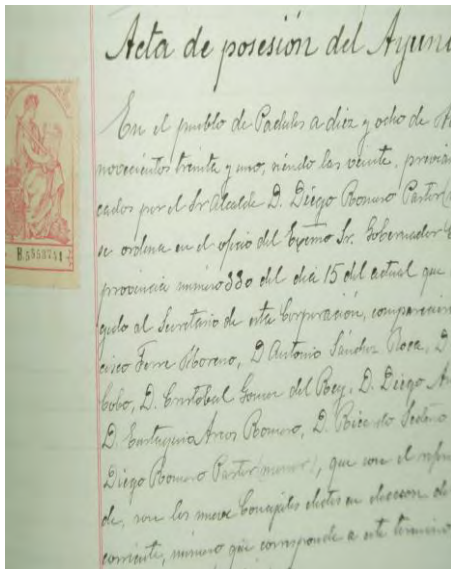 Acta de posesión del Ayun
En el pueblo de Padules a diez y ocho de A
novecientos treinta y uno, siendo las veinte, previa
cados por el Sr Alcalde D. Diego Romero Pastor
se ordena en el oficio del Excmo Sr. Gobernador
provincia número 330 del día 15 del actual que
gido al Secretario de esta Corporación, comparecie
cisco Ferre Moreno, D Antonio Sánchez Roca, D
Cobo, D. Cristobal Gomez del Rey, D. Diego A
D. Eustaquio Arcos Romero, D. Ricardo Sedeño
Diego Romero Pastor (menor), que con el
de, son los nueve Concejales electos en eleccion de
corriente, número que corresponde a este termino